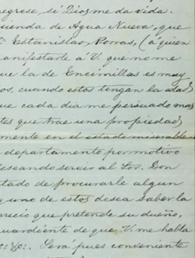 egrese si Dios me da vida.
uenda de Agua Nueva, que
Estanislao Porras, (a quien
anifestado a V. que no me
ue la de Encinillas es muy
os, cuando estos tengan la dad
ue cada dia me persuado mas
tes que trae una propiedad,
mente en el estado miserable
departamento por motivo
deseando servir al Sor. Don
tado de procurarle algun
uno de estos desea saber la
precio que pretende su dueño,
guardiente de que V. me habla
&c. Será pues conveniente